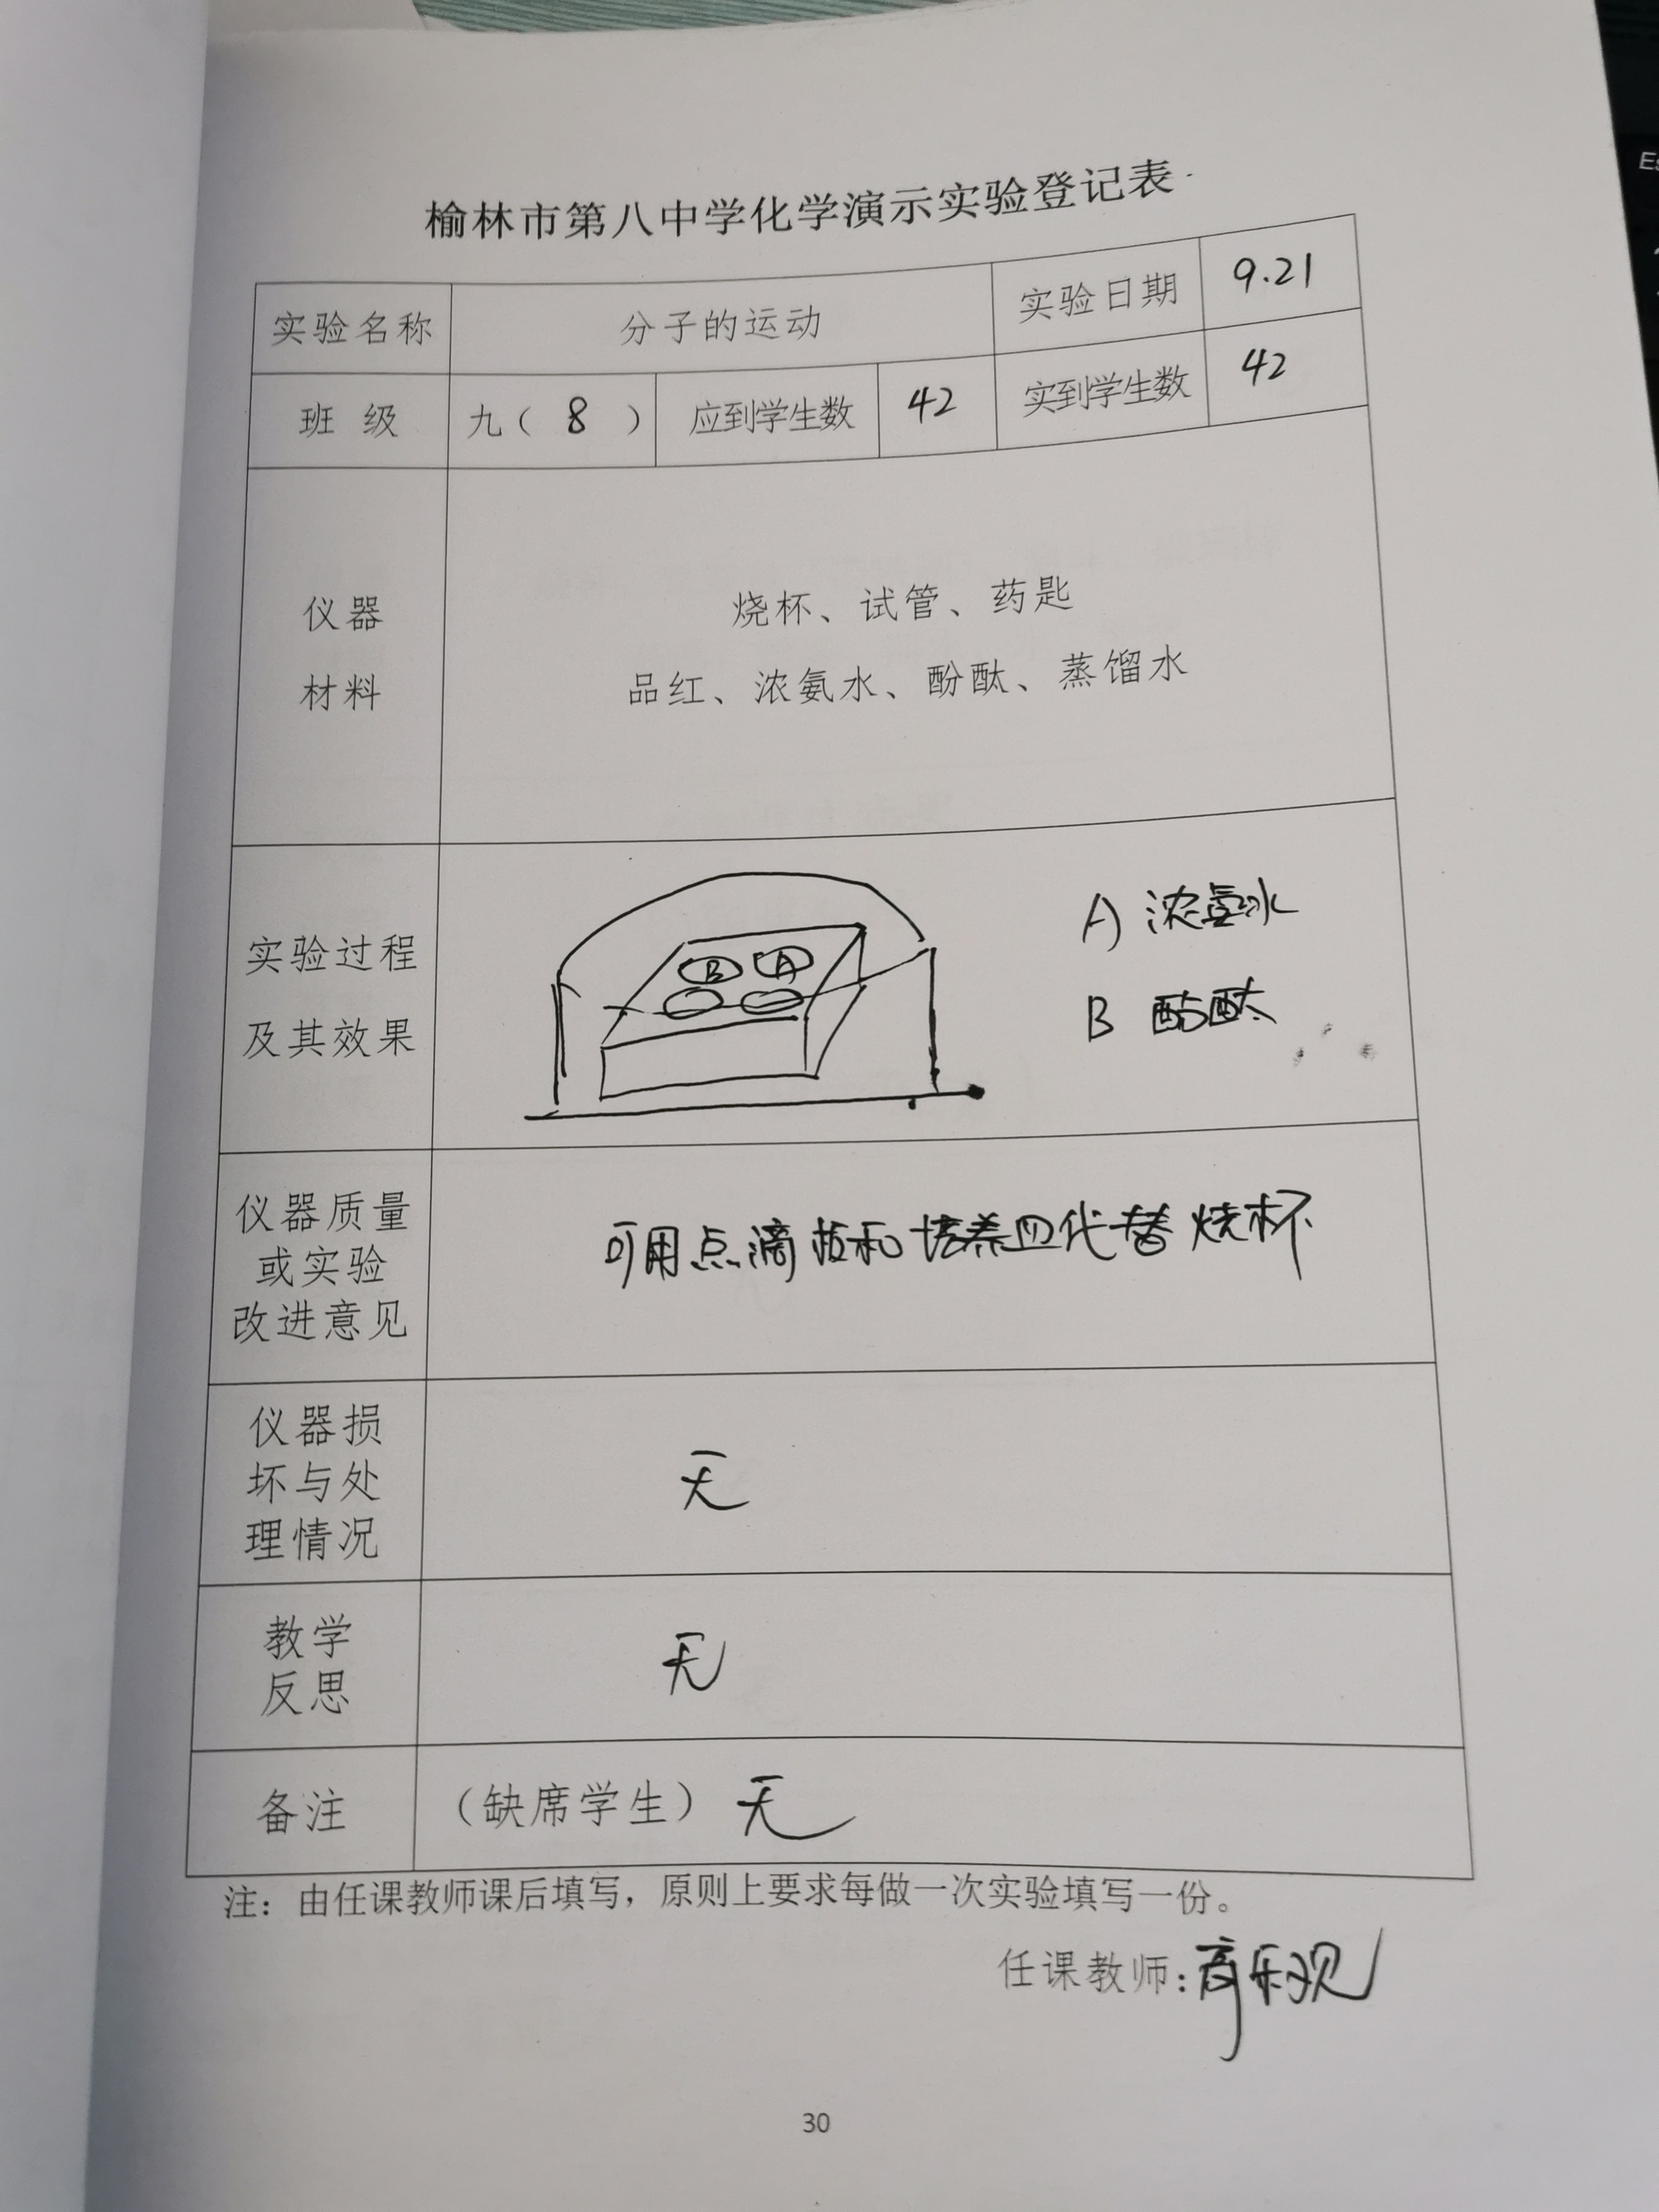 榆林市第八中学化学演示实验登记表
实验名称 分子的运动 实验日期 9.21
班 级 九（ 8 ） 应到学生数 42 实到学生数 42
仪器
材料
烧杯、试管、药匙
品红、浓氨水、酚酞、蒸馏水
实验过程
及其效果
B A
A) 浓氨水
B 酚酞
仪器质量
或实验
改进意见
可用点滴板和培养皿代替烧杯
仪器损
坏与处
理情况
无
教学
反思
无
备注 （缺席学生） 无
注：由任课教师课后填写，原则上要求每做一次实验填写一份。
任课教师：
30